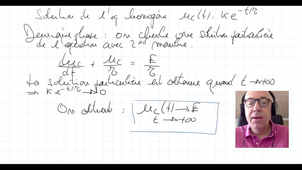 Solution de l'eq homogène uc(t) : K e^-t/τ
Deuxième phase : on cherche une solution particulière
de l'équation avec 2nd membre.
duc/dt + uc/τ = E/τ
La solution particulière est obtenue quand t→+∞
⟹ K e^-t/τ → 0
On obtient : uc(t) → E
t→+∞